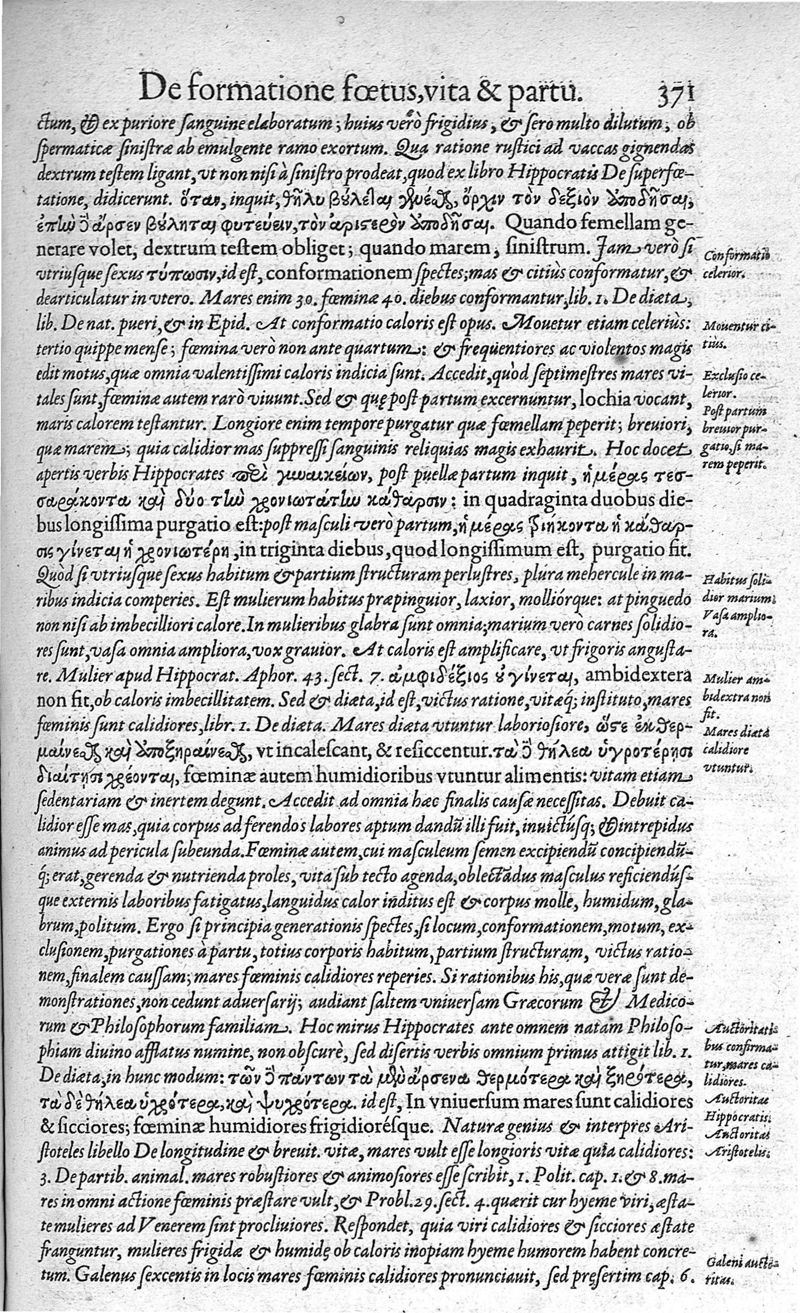 De formatione fœtus, vita & partu. 371
ctum, & ex puriore sanguine elaboratum; huius verò frigidius, & sero multo dilutum, ob
spermaticæ sinistræ ab emulgente ramo exortum. Qua ratione rustici ad vaccas gignendas
dextrum testem ligant, vt non nisi à sinistro prodeat, quod ex libro Hippocratis De superfœ-
tatione, didicerunt. ὅταν, inquit, θῆλυ βούληται γενέσθαι, ὄρχιν τὸν δεξιὸν ἀποδῆσαι,
ἐπὴν δὲ ἄρσεν βούληται φυτεύειν, τὸν ἀριστερὸν ἀποδῆσαι. Quando femellam ge-
nerare volet, dextrum testem obliget; quando marem, sinistrum. Jam verò si
vtriusque sexus τύπωσιν, id est, conformationem spectes; mas & citiùs conformatur, &
dearticulatur in vtero. Mares enim 30. fœminæ 40. diebus conformantur, lib. 1. De diæta,
lib. De nat. pueri, & in Epid. At conformatio caloris est opus. Mouetur etiam celeriùs:
tertio quippe mense; fœmina verò non ante quartum: & frequentiores ac violentos magis
edit motus, quæ omnia valentissimi caloris indicia sunt. Accedit, quòd septimestres mares vi-
tales sunt, fœminæ autem rarò viuunt. Sed & quę post partum excernuntur, lochia vocant,
maris calorem testantur. Longiore enim tempore purgatur quæ fœmellam peperit; breuiori,
quæ marem; quia calidior mas suppressi sanguinis reliquias magis exhaurit. Hoc docet
apertis verbis Hippocrates περὶ γυναικείων, post puellæ partum inquit, ἡμέρας τεσ-
σαράκοντα καὶ δύο τὴν χρονιωτάτην κάθαρσιν: in quadraginta duobus die-
bus longissima purgatio est: post masculi verò partum, ἡμέρας τριήκοντα ἡ κάθαρ-
σις γίνεται ἡ χρονιωτέρη, in triginta diebus, quod longissimum est, purgatio fit.
Quòd si vtriusque sexus habitum & partium structuram perlustres, plura mehercule in ma-
ribus indicia comperies. Est mulierum habitus præpinguior, laxior, molliórque: at pinguedo
non nisi ab imbecilliori calore. In mulieribus glabra sunt omnia; marium verò carnes solidio-
res sunt, vasa omnia ampliora, vox grauior. At caloris est amplificare, vt frigoris angusta-
re. Mulier apud Hippocrat. Aphor. 43. sect. 7. ἀμφιδέξιος οὐ γίνεται, ambidextera
non fit, ob caloris imbecillitatem. Sed & diæta, id est, victus ratione, vitæq; instituto, mares
fœminis sunt calidiores, libr. 1. De diæta. Mares diæta vtuntur laboriosiore, ὥστε ἐκθερ-
μαίνεσθαι καὶ ἀποξηραίνεσθαι, vt incalescant, & resiccentur. τὰ δὲ θήλεα ὑγροτέρῃσι
διαίτῃσι χρέονται, fœminæ autem humidioribus vtuntur alimentis: vitam etiam
sedentariam & inertem degunt. Accedit ad omnia hæc finalis causæ necessitas. Debuit ca-
lidior esse mas, quia corpus ad ferendos labores aptum dandū illi fuit, inuictúsq; & intrepidus
animus ad pericula subeunda. Fœminæ autem, cui masculeum semen excipiendū concipiendū-
q; erat, gerenda & nutrienda proles, vita sub tecto agenda, oblectādus masculus reficiendús-
que externis laboribus fatigatus, languidus calor inditus est & corpus molle, humidum, gla-
brum, politum. Ergo si principia generationis spectes, si locum, conformationem, motum, ex-
clusionem, purgationes à partu, totius corporis habitum, partium structuram, victus ratio-
nem, finalem caussam; mares fœminis calidiores reperies. Si rationibus his, quæ veræ sunt de-
monstrationes, non cedunt aduersarij; audiant saltem vniuersam Græcorum & Medico-
rum & Philosophorum familiam. Hoc mirus Hippocrates ante omnem natam Philoso-
phiam diuino afflatus numine, non obscurè, sed disertis verbis omnium primus attigit lib. 1.
De diæta, in hunc modum: τῶν δὲ πάντων τὰ μὲν ἄρσενα θερμότερα καὶ ξηρότερα,
τὰ δὲ θήλεα ὑγρότερα, καὶ ψυχρότερα. id est, In vniuersum mares sunt calidiores
& sicciores; fœminæ humidiores frigidiorésque. Naturæ genius & interpres Ari-
stoteles libello De longitudine & breuit. vitæ, mares vult esse longioris vitæ quia calidiores:
3. De partib. animal. mares robustiores & animosiores esse scribit, 1. Polit. cap. 1. & 8. ma-
res in omni actione fœminis præstare vult, & Probl. 29. sect. 4. quærit cur hyeme viri, æsta-
te mulieres ad Venerem sint procliuiores. Respondet, quia viri calidiores & sicciores æstate
franguntur, mulieres frigidæ & humidę ob caloris inopiam hyeme humorem habent concre-
tum. Galenus sexcentis in locis mares fœminis calidiores pronunciauit, sed pręsertim cap. 6.
Conformatio
celerior.
Mouentur ci-
tiùs.
Exclusio ce-
lerior.
Post partum
breuior pur-
gatio, si ma-
rem peperit.
Habitus soli-
dior marium.
Vasa amplio-
ra.
Mulier am-
bidextra non
fit.
Mares diæta
calidiore
vtuntur.
Auctoritati-
bus confirma-
tur, mares ca-
lidiores.
Auctoritas
Hippocratis.
Auctoritas
Aristotelis.
Galeni aucto-
ritas.